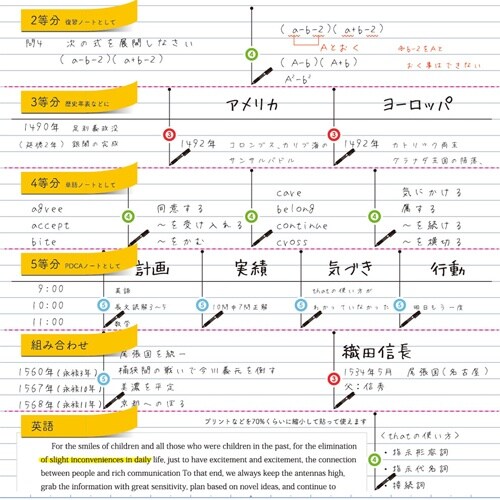 2等分 復習ノートとして
問4 次の式を展開しなさい
(a-b-2)(a+b-2)
(a-b-2)(a+b-2)
Aとおく
(A-b)(A+b)
A²-b²
※b-2をAと
おく事はできない
4
3等分 歴史年表などに
アメリカ
ヨーロッパ
1490年 足利義政没
(延徳2年) 銀閣の完成
3
1492年 コロンブス、カリブ海の
サンサルバドル
3
1492年 カトリック両王
グラナダ王国の陥落。
4等分 単語ノートとして
agree 同意する
accept ～を受け入れる
bite ～をかむ
4
cave 気にかける
belong 属する
continue ～を続ける
cross ～を横切る
4
5等分 PDCAノートとして
計画 実績 気づき 行動
9:00 英語
10:00 長文試解3～5
11:00 数学
5
10問中7問正解
5
thatの使い方が
わかっていなかった
5
明日もう一度
組み合わせ
尾張国を統一
1560年(永禄3年) 桶狭間の戦いで今川義元を倒す
1567年(永禄10年) 美濃を平定
1568年(永禄11年) 京都へのぼる
5
織田信長
1534年5月 尾張国(名古屋)
父:信秀
3
英語
プリントなどを70%くらいに縮小して貼って使えます
For the smiles of children and all those who were children in the past, for the elimination
of slight inconveniences in daily life, just to have excitement and excitement, the connection
between people and rich communication To that end, we always keep the antennas high,
grab the information with great sensitivity, plan based on novel ideas, and continue to
4
<thatの使い方>
・指示形容詞
・指示代名詞
・接続詞